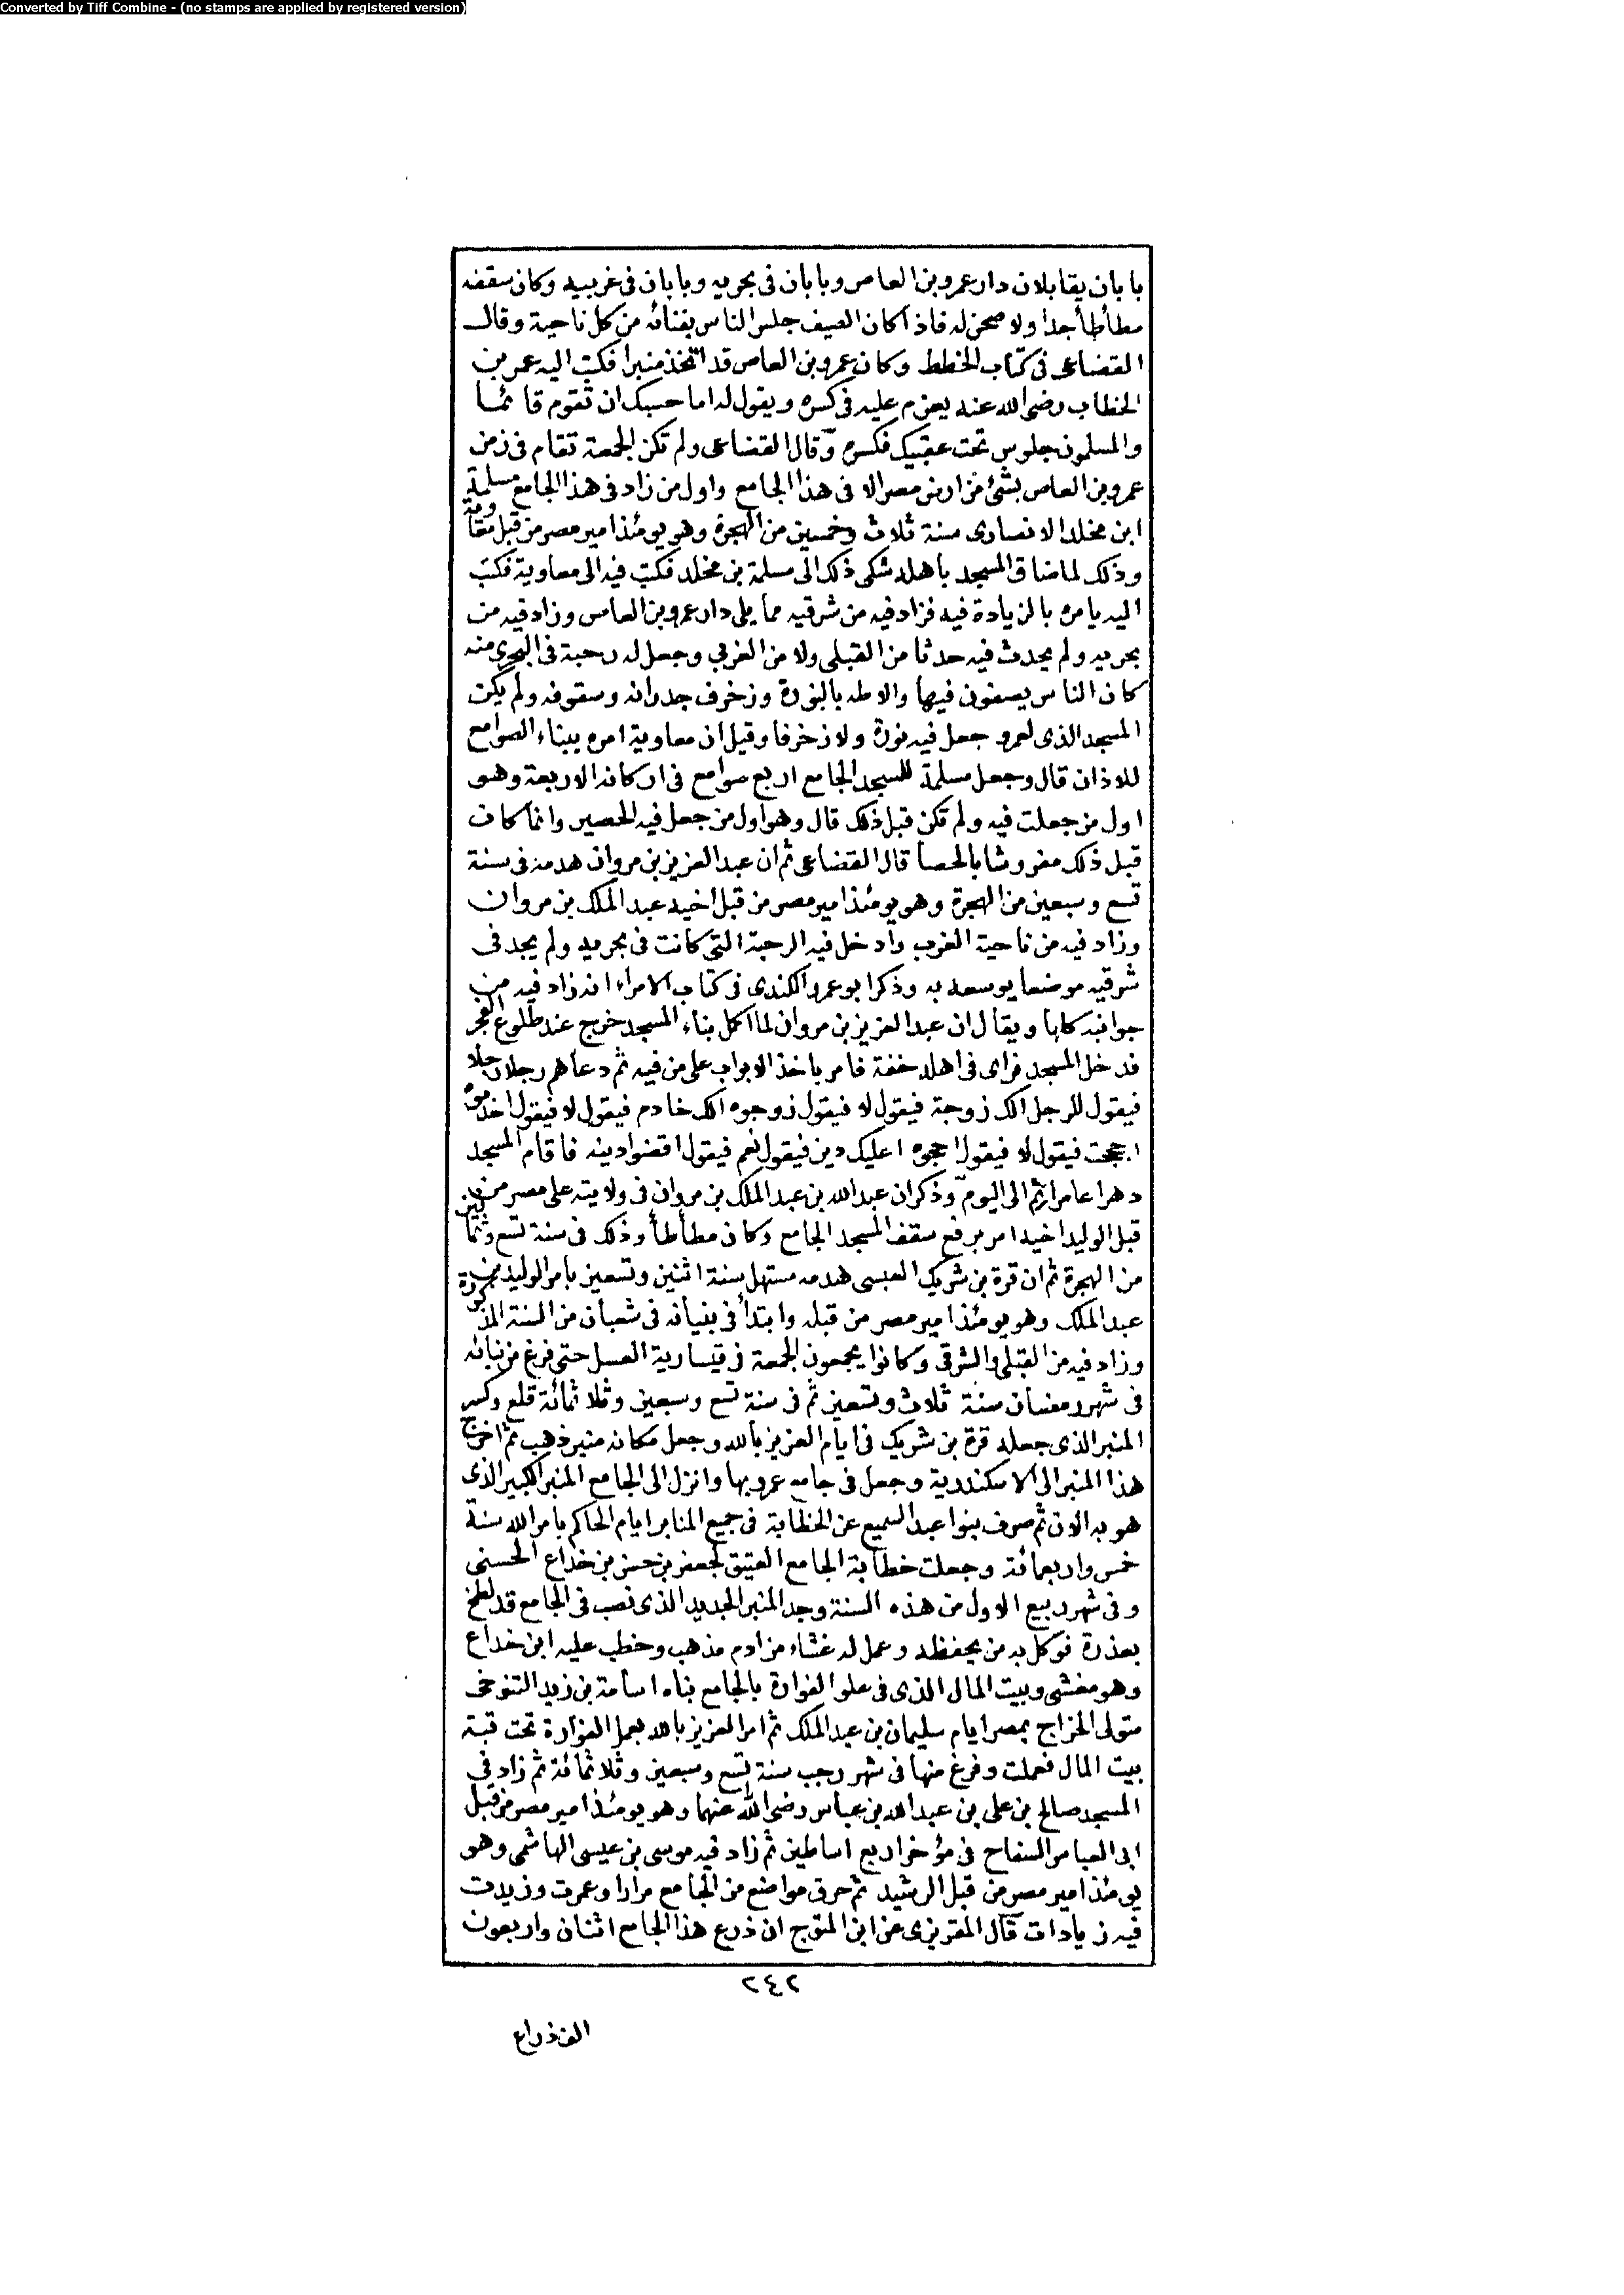 Converted by Tiff Combine - (no stamps are applied by registered version)
بابان يقابلان دار عمرو بن العاص وبابان فى بحريه وبابان فى غربيه وكان سقفه
مطأطأ جدا ولا صحن له فاذا كان الصيف جلس الناس بفنائه من كل ناحية وقال
القضاعى فى كتاب الخطط وكان عمرو بن العاص قد اتخذ منبرا فكتب اليه عمر بن
الخطاب رضى الله عنه يعزم عليه فى كسره ويقول له اما حسبك ان تقوم قائما
والمسلمون جلوس تحت عقبيك فكسره وقال القضاعى ولم تكن الجمعة تقام فى زمن
عمرو بن العاص بشئ من ارض مصر الا فى هذا الجامع واول من زاد فى هذا الجامع مسلمة
ابن مخلد الانصارى سنة ثلاث وخمسين من الهجرة وهو يومئذ امير مصر من قبل معاوية
وذلك لما ضاق المسجد باهله شكى ذلك الى مسلمة بن مخلد فكتب فيه الى معاوية فكتب
اليه يامره بالزيادة فيه فزاد فيه من شرقيه مما يلى دار عمرو بن العاص وزاد فيه من
بحريه ولم يحدث فيه حدثا من القبلى ولا من الغربي وجعل له رحبة فى البحرى منه
كان الناس يصفون فيها والاطه بالنورة وزخرف جدرانه وسقوفه ولم يكن
المسجد الذى لعمرو جعل فيه نورة ولا زخرفا وقيل ان معاوية امره ببناء الصوامع
للاذان قال وجعل مسلمة للمسجد الجامع اربع صوامع فى اركانه الاربعة وهو
اول من جعلت فيه ولم تكن قبل ذلك قال وهو اول من جعل فيه الحصير وانما كان
قبل ذلك مفروشا بالحصا قال القضاعى ثم ان عبد العزيز بن مروان هدمه فى سنة
تسع وسبعين من الهجرة وهو يومئذ امير مصر من قبل اخيه عبد الملك بن مروان
وزاد فيه من ناحية الغرب وادخل فيه الرحبة التى كانت فى بحريه ولم يجد فى
شرقيه موضعا يوسعه به وذكر ابو عمر الكندى فى كتاب الامراء انه زاد فيه من
جوانبه كلها ويقال ان عبد العزيز بن مروان لما اكمل بناء المسجد خرج عند طلوع الفجر
فدخل المسجد فراى فى اهله خفة فامر باخذ الابواب على من فيه ثم دعاهم رجلا رجلا
فيقول للرجل الك زوجة فيقول لا فيقول زوجوه الك خادم فيقول لا فيقول اخدموه
احججت فيقول لا فيقول احجوه اعليك دين فيقول نعم فيقول اقضوا دينه فاقام المسجد
دهرا عامرا ثم الى اليوم وذكر ان عبد الله بن عبد الملك بن مروان فى ولايته على مصر من
قبل الوليد اخيه امر برفع سقف المسجد الجامع وكان مطأطأ وذلك فى سنة تسع وثمانين
من الهجرة ثم ان قرة بن شريك العبسى هدمه مستهل سنة اثنين وتسعين بامر الوليد بن
عبد الملك وهو يومئذ امير مصر من قبله وابتدأ فى بنيانه فى شعبان من السنة المذكورة
وزاد فيه من القبلى والشرقى وكانوا يجمعون الجمعة فى قيسارية العسل حتى فرغ من بنائه
فى شهر رمضان سنة ثلاث وتسعين ثم فى سنة تسع وسبعين وثلاثمائة قلع وكسر
المنبر الذى جعله قرة بن شريك فى ايام العزيز بالله وجعل مكانه منبر ذهب ثم اخرج
هذا المنبر الى الاسكندرية وجعل فى جامع عمرو بها وانزل الى الجامع المنبر الكبير الذى
هو به الان ثم صرف بنوا عبد السميع عن الخطابة فى جميع المنابر ايام الحاكم بامر الله سنة
خمس واربعمائة وجعلت خطابة الجامع العتيق لجعفر بن حسن بن خداع الحسنى
وفى شهر ربيع الاول من هذه السنة وجد المنبر الجديد الذى نصب فى الجامع قد لطخ
بعذرة فوكل به من يحفظه وعمل له غشاء من ادم مذهب وخطب عليه ابن خداع
وهو مغشى وبيت المال الذى فى علو الفوارة بالجامع بناه اسامة بن زيد التنوخى
متولى الخراج بمصر ايام سليمان بن عبد الملك ثم امر العزيز بالله بعمل الفوارة تحت قبة
بيت المال فعملت وفرغ منها فى شهر رجب سنة تسع وسبعين وثلاثمائة ثم زاد فى
المسجد صالح بن على بن عبد الله بن عباس رضى الله عنهما وهو يومئذ امير مصر من قبل
ابى العباس السفاح فى مؤخره اربع اساطين ثم زاد فيه موسى بن عيسى الهاشمى وهو
يومئذ امير مصر من قبل الرشيد ثم حرق مواضع من الجامع مرارا وعمرت وزيدت
فيه زيادات قال المقريزى عن ابن المتوج ان ذرع هذا الجامع اثنان واربعون
٢٤٢
الف ذراع